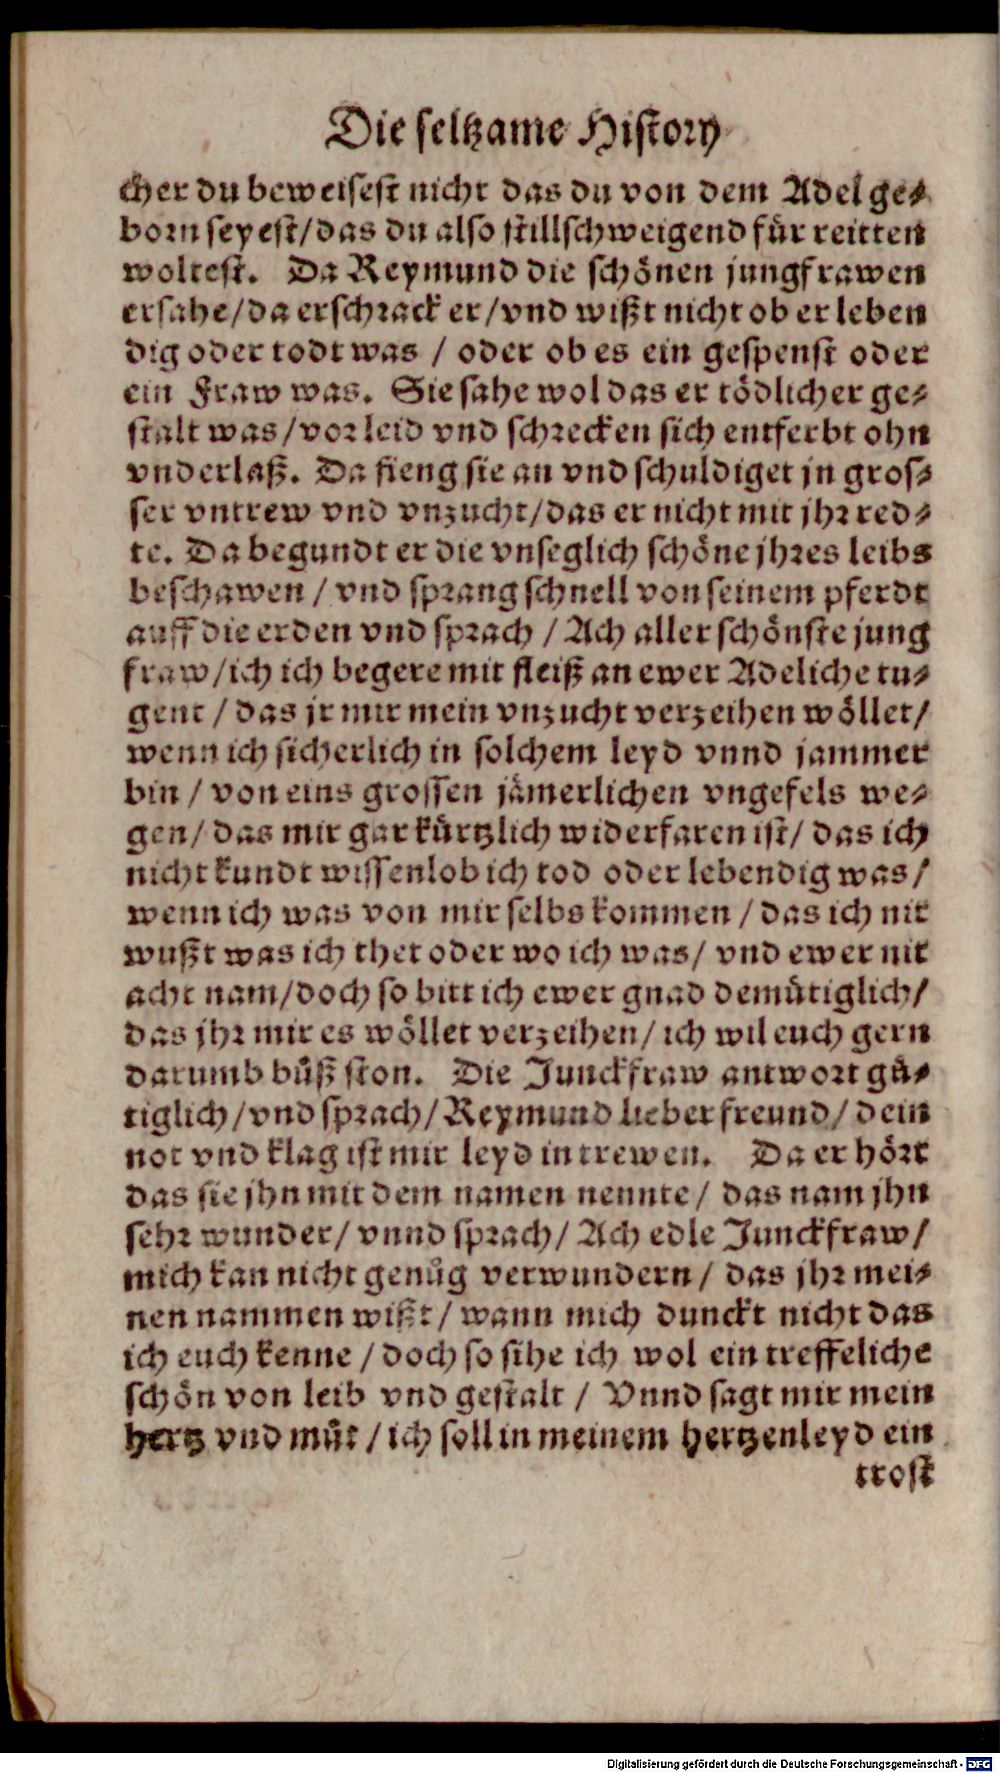 Die seltzame History
cher du beweisest nicht das du von dem Adel ge-
born seyest/das du also stillschweigend für reitten
woltest. Da Reymund die schönen jungfrawen
ersahe/da erschrack er/vnd wißt nicht ob er leben
dig oder todt was / oder ob es ein gespenst oder
ein Fraw was. Sie sahe wol das er tödlicher ge-
stalt was/vor leid vnd schrecken sich entferbt ohn
vnderlaß. Da fieng sie an vnd schuldiget jn gros-
ser vntrew vnd vnzucht/das er nicht mit jhr red-
te. Da begundt er die vnseglich schöne jhres leibs
beschawen / vnd sprang schnell von seinem pferdt
auff die erden vnd sprach / Ach aller schönste jung
fraw/ich ich begere mit fleiß an ewer Adeliche tu-
gent / das jr mir mein vnzucht verzeihen wöllet/
wenn ich sicherlich in solchem leyd vnnd jammer
bin / von eins grossen jämerlichen vngefels we-
gen/ das mir gar kürtzlich widerfaren ist/ das ich
nicht kundt wissenlob ich tod oder lebendig was/
wenn ich was von mir selbs kommen / das ich nit
wußt was ich thet oder wo ich was/ vnd ewer nit
acht nam/doch so bitt ich ewer gnad demütiglich/
das jhr mir es wöllet verzeihen/ ich wil euch gern
darumb bůß ston. Die Junckfraw antwort gü-
tiglich/vnd sprach/Reymund lieber freund/ dein
not vnd klag ist mir leyd in trewen. Da er hört
das sie jhn mit dem namen nennte/ das nam jhn
sehr wunder/ vnnd sprach/ Ach edle Junckfraw/
mich kan nicht genůg verwundern/ das jhr mei-
nen nammen wißt/ wann mich dunckt nicht das
ich euch kenne / doch so sihe ich wol ein treffeliche
schön von leib vnd gestalt / Vnnd sagt mir mein
hertz vnd můt / ich soll in meinem hertzenleyd ein
trost
Digitalisierung gefördert durch die Deutsche Forschungsgemeinschaft - DFG